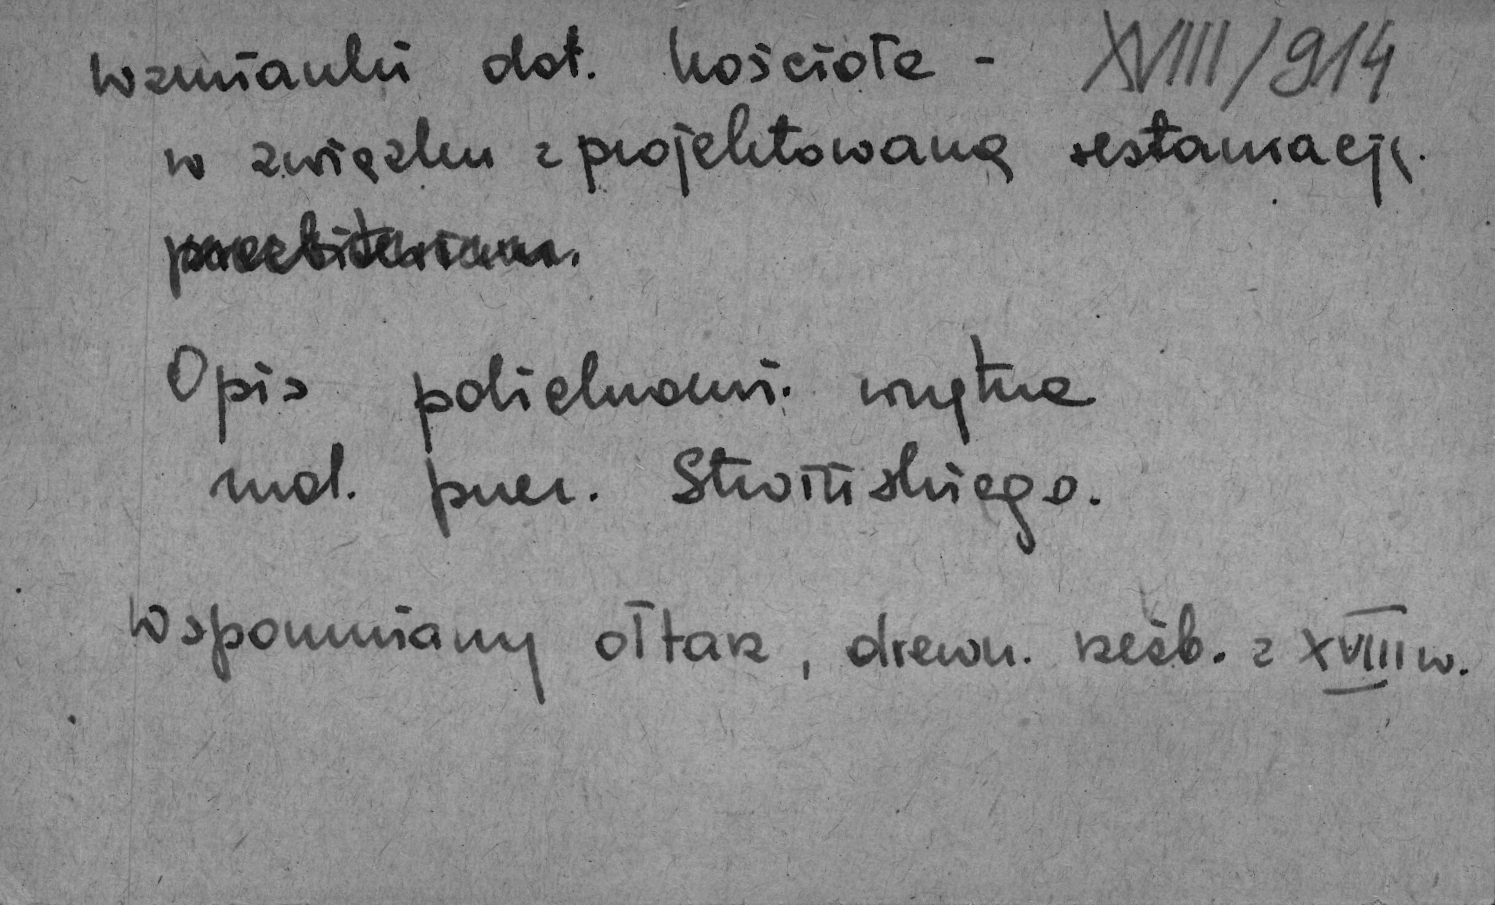 Wzmianki dot. kościoła - XVIII/914
w związku z projektowaną restauracją.
prezbiterium.
Opis polichromi. wnętrza
mal. przez. Stroińskiego.
Wspomniany ołtarz, drewn. rzeźb. z XVIII w.